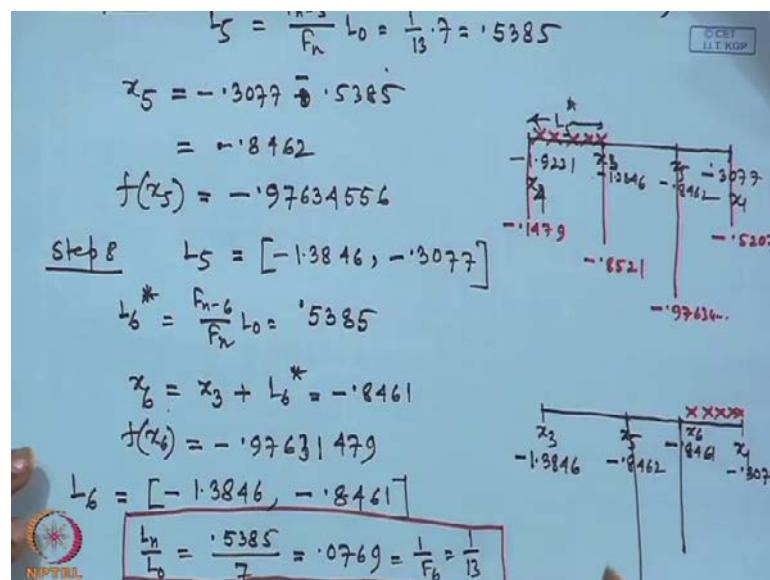 L5 = Fn-5/Fn L0 = 1/13 . 7 = .5385
© CET
I.I.T. KGP
x5 = -.3077 - .5385
= -.8462
f(x5) = -.97634556
Step 8 L5 = [-1.3846, -.3077]
L6* = Fn-6/Fn L0 = .5385
x6 = x3 + L6* = -.8461
f(x6) = -.97631479
L6 = [-1.3846, -.8461]
Ln/L0 = .5385/7 = .0769 = 1/F6 = 1/13
L5*
x x x x x
-1.9231 x3 x5 -.3077
x4 -1.3846 -.8462 x1
-.1479 -.8521 -.97634... -.5207
x x x x x
x3 x5 x6 x1
-1.3846 -.8462 -.8461 -.307
NPTEL